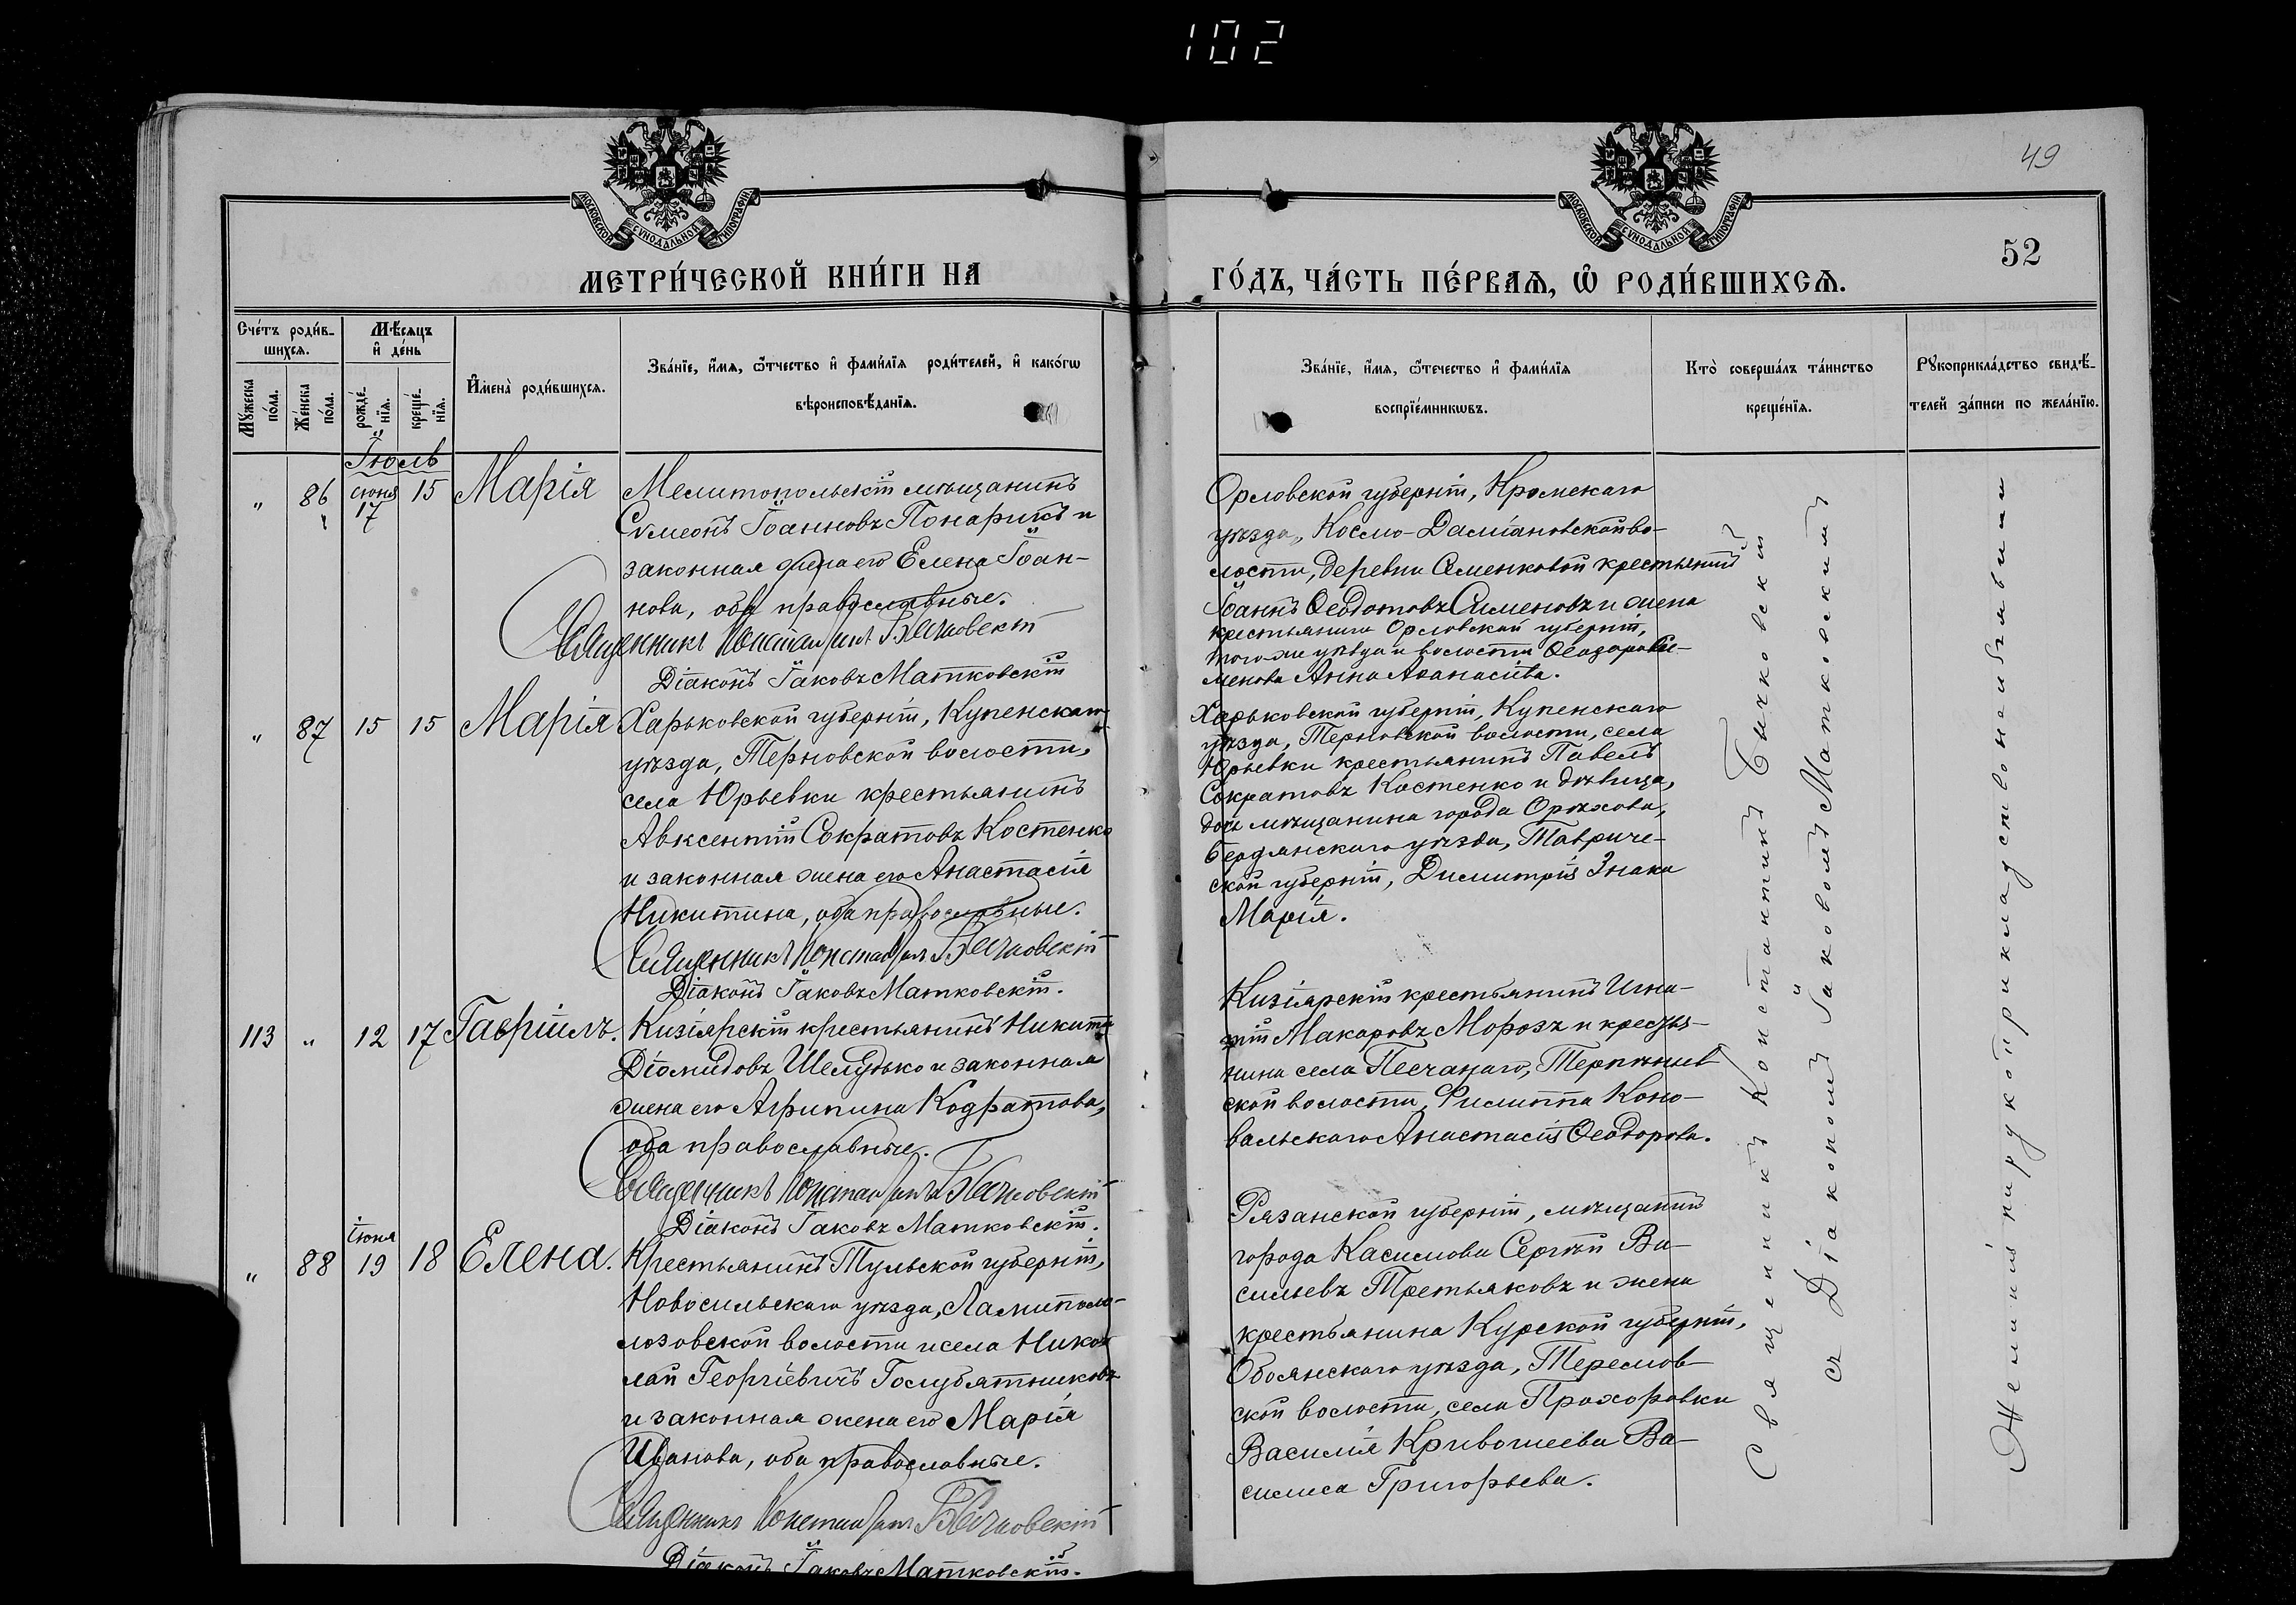 102
49
МОСКОВСКОЙ СѴНОДАЛЬНОЙ ТИПОГРАФІИ
МОСКОВСКОЙ СѴНОДАЛЬНОЙ ТИПОГРАФІИ
52
МЕТРИ́ЧЕСКОЙ КНИ́ГИ НА
ГО́ДЪ, ЧА́СТЬ ПЕ́РВАѦ, Ѽ РОДИ́ВШИХСѦ.
Сче́тъ роди́в-
шихсѧ.
Мѣ́сѧцъ
и҆ де́нь
Мꙋ́жеска
по́ла.
Же́нска
по́ла.
рожде́-
нїѧ.
креще́-
нїѧ.
И҆мена̀ роди́вшихсѧ.
Зва́нїе, и҆́мѧ, ѻ҆́тчество и҆ фами́лїѧ роди́телей, и҆ како́гѡ
вѣроисповѣ́данїѧ.
Зва́нїе, и҆́мѧ, ѻ҆́течество и҆ фами́лїѧ
воспрїе́мникѡвъ.
Кто̀ соверша́лъ та́инство
креще́нїѧ.
Рꙋкоприкла́дство свидѣ́-
телей за́писи по жела́нїю.
Іюль
" 86 іюня 17 15 Марія
Мелитопольскій мѣщанинъ
Сѵмеонъ Іоанновъ Понаринъ и
законная жена его Елена Іоан-
нова, оба православные.
Священникъ Константинъ Бычковскій
Діаконъ Іаковъ Матковскій
Орловской губерніи, Кромскаго
уѣзда, Космо-Даміановской во-
лости, деревни Семенковой крестьянинъ
Іоаннъ Ѳеодотовъ Сименовъ и жена
крестьянина Орловской губерніи,
того-же уѣзда и волости Ѳеодора Си-
менова Анна Аѳанасіева.
" 87 15 15 Марія
Харьковской губерніи, Купенскаго
уѣзда, Терновской волости,
села Юрьевки крестьянинъ
Авксентій Сократовъ Костенко
и законная жена его Анастасія
Никитина, оба православные.
Священникъ Константинъ Бычковскій
Діаконъ Іаковъ Матковскій.
Харьковской губерніи, Купенскаго
уѣзда, Терновской волости, села
Юрьевки крестьянинъ Павелъ
Сократовъ Костенко и дѣвица,
дочь мѣщанина города Орѣхова,
Бердянскаго уѣзда, Тавриче-
ской губерніи, Димитрія Знака
Марія.
113 " 12 17 Гавріилъ.
Кизіярскій крестьянинъ Никита
Діомидовъ Шелудько и законная
жена его Агрипина Кодратова,
оба православные.
Священникъ Константинъ Бычковскій
Діаконъ Іаковъ Матковскій.
Кизіярскій крестьянинъ Игна-
тій Макаровъ Морозъ и крестья-
нина села Песчанаго, Терпѣньев
ской волости, Филиппа Коно-
вальскаго Анастасія Ѳеодорова.
" 88 іюня 19 18 Елена.
Крестьянинъ Тульской губерніи,
Новосильскаго уѣзда,
волости и села Нико-
лай Георгіевичъ Голубятниковъ
и законная жена его Марія
Иванова, оба православные.
Священникъ Константинъ Бычковскій
Діаконъ Іаковъ Матковскій.
Рязанской губерніи, мѣщанинъ
города Касимова Сергѣй Ва-
сильевъ Третьяковъ и жена
крестьянина Курской губерніи,
Обоянскаго уѣзда,
ской волости, села Прохоровки
Василія Кривошеева Ва-
силиса Григорьева.
Священникъ Константинъ Бычковскій
съ Діакономъ Іаковомъ Матковскимъ
Желанія на рукоприкладство не изъявили